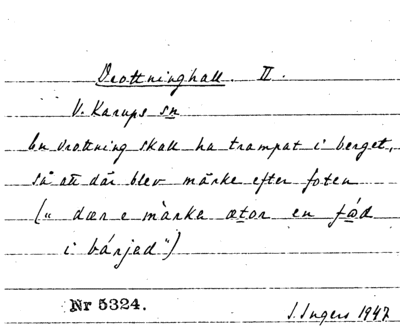 Drottninghall. II.
V. Karups sn
En drottning skall ha trampat i berget,
så att där blev märke efter foten
(„ dær e màrka ætor en fǻd
i bárjad")
Nr 5324.
I. Ingers 1947